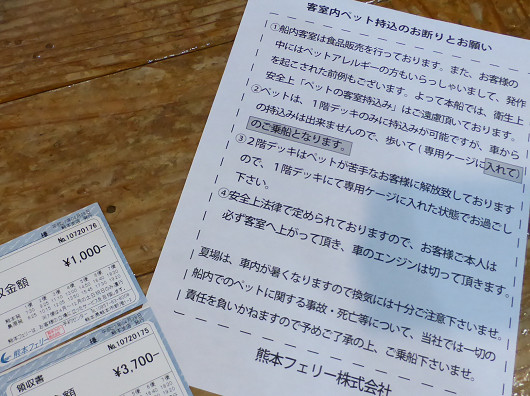 客室内ペット持込のお断りとお願い
①船内客室は食品販売を行っております。また、お客様の
中にはペットアレルギーの方もいらっしゃいまして、発作
を起こされた前例もございます。よって本船では、衛生上
安全上「ペットの客室持込み」はご遠慮頂いております。
②ペットは、１階デッキのみに持込みが可能ですが、車から
の持込みは出来ませんので、歩いて(専用ケージに入れて)
のご乗船となります。
③２階デッキはペットが苦手なお客様に解放致しております
ので、１階デッキにて専用ケージに入れた状態でお過ごし
下さい。
④安全上法律で定められておりますので、お客様ご本人は
必ず客室へ上がって頂き、車のエンジンは切って頂きます。
夏場は、車内が暑くなりますので換気には十分ご注意下さいませ。
船内でのペットに関する事故・死亡等について、当社では一切の
責任を負いかねますので予めご了承の上、ご乗船下さいませ。
熊本フェリー株式会社
様
No.10720176
金額
¥1,000-
熊本フェリー
領収書
様
No.10720175
金額
¥3,700-